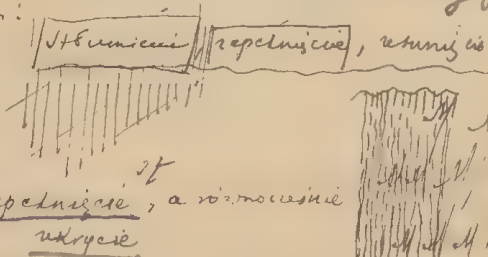 Stłumienie zepchnięcie, usunięcie
zepchnięcie, a równocześnie
ukrycie